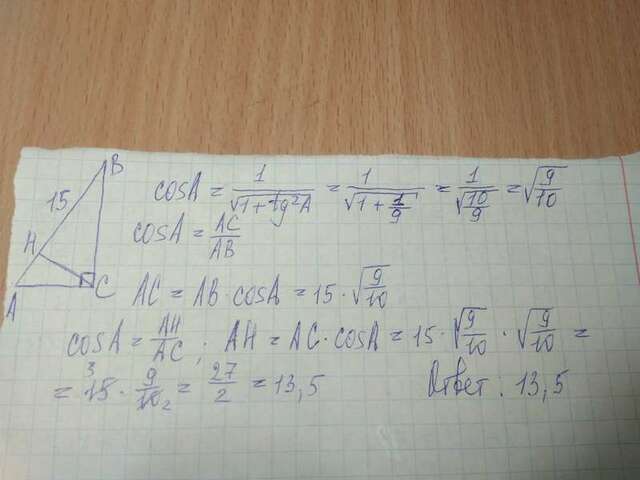 B
15
H
A
C
cosA = 1/√(1+tg²A) = 1/√(1+1/9) = 1/√(10/9) = √(9/10)
cosA = AC/AB
AC = AB·cosA = 15·√(9/10)
cosA = AH/AC; AH = AC·cosA = 15·√(9/10)·√(9/10) =
= 15 3 · 9/10 2 = 27/2 = 13,5 Ответ: 13,5